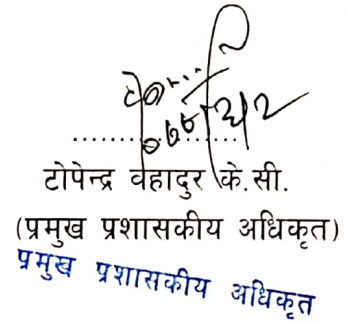 टोपेन्द्र वहादुर के.सी.
(प्रमुख प्रशासकीय अधिकृत)
प्रमुख प्रशासकीय अधिकृत